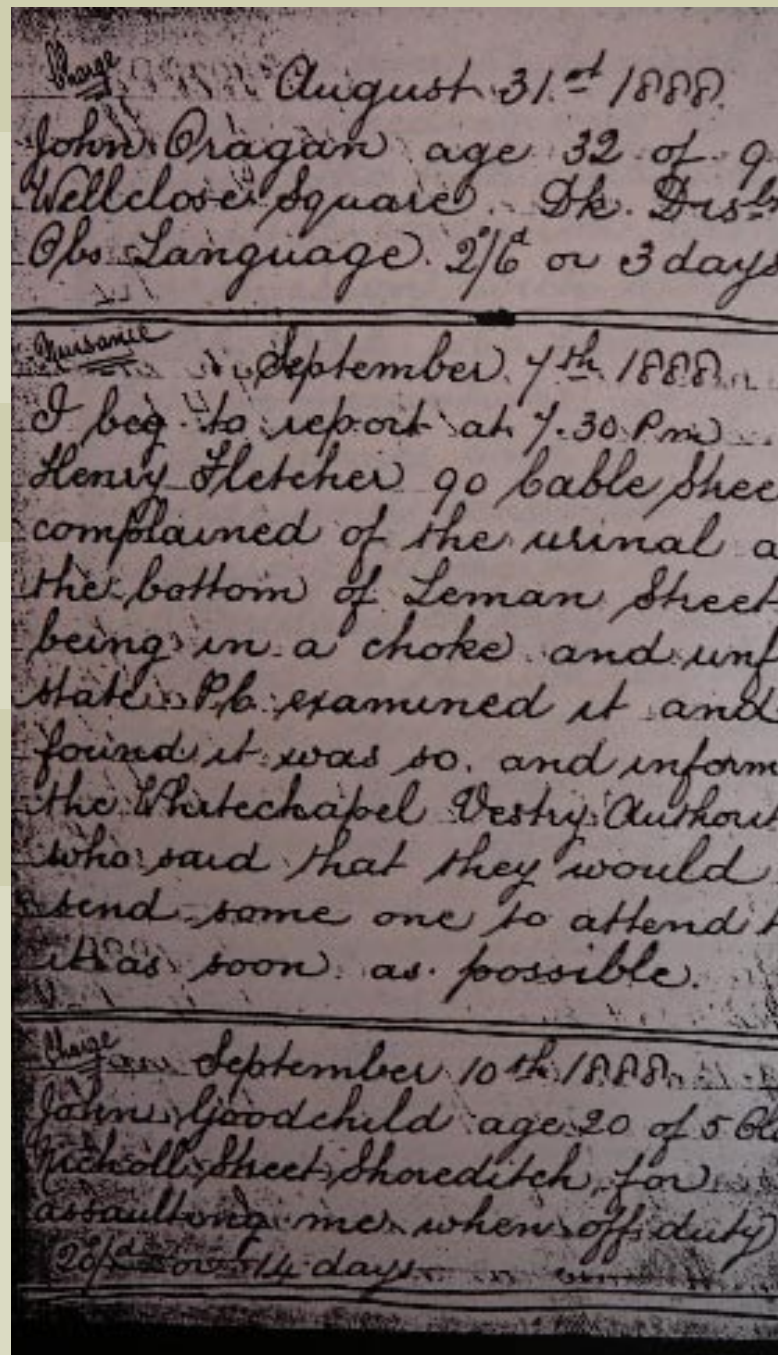 Charge
August 31st 1888
John Oragan age 32 of 9
Wellclose Square. Dk. Dis
Obs Language. 2/6d or 3 days
Nuisance
September 7th 1888
I beg to report at 7.30 Pm
Henry Fletcher 90 Cable Stree
complained of the urinal a
the bottom of Leman Street
being in a choke and unf
state P.C. examined it and
found it was so. and inform
the Whitechapel Vestry Authori
who said that they would
send some one to attend t
it as soon as possible.
Charge
September 10th 1888
John Goodchild age 20 of 5
Nicholl Street Shoreditch for
assaulting me when off duty
or 14 days